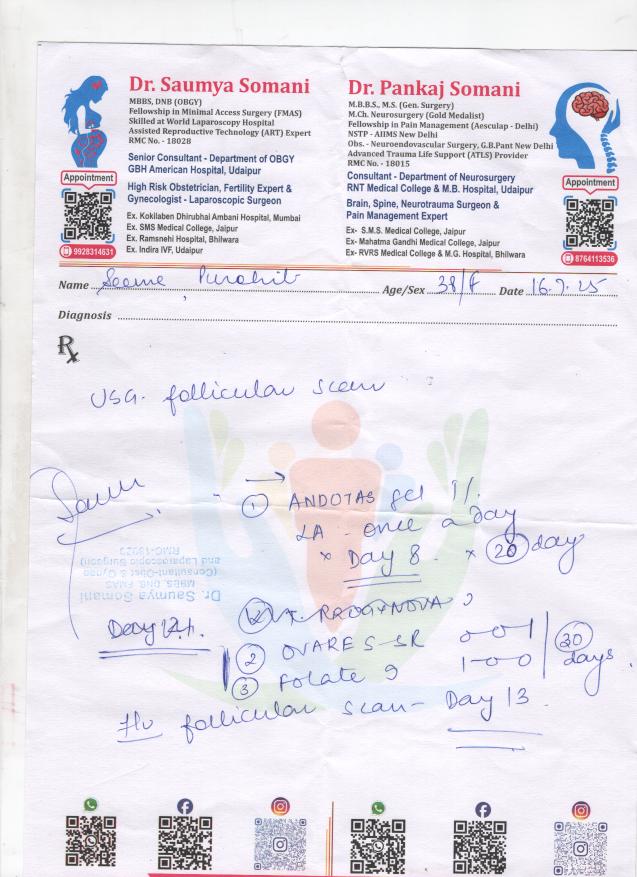 Dr. Saumya Somani
MBBS, DNB (OBGY)
Fellowship in Minimal Access Surgery (FMAS)
Skilled at World Laparoscopy Hospital
Assisted Reproductive Technology (ART) Expert
RMC No. - 18028
Senior Consultant - Department of OBGY
GBH American Hospital, Udaipur
High Risk Obstetrician, Fertility Expert &
Gynecologist - Laparoscopic Surgeon
Ex. Kokilaben Dhirubhai Ambani Hospital, Mumbai
Ex. SMS Medical College, Jaipur
Ex. Ramsnehi Hospital, Bhilwara
Ex. Indira IVF, Udaipur
Appointment
9928314631
Dr. Pankaj Somani
M.B.B.S., M.S. (Gen. Surgery)
M.Ch. Neurosurgery (Gold Medalist)
Fellowship in Pain Management (Aesculap - Delhi)
NSTP - AIIMS New Delhi
Obs. - Neuroendovascular Surgery, G.B.Pant New Delhi
Advanced Trauma Life Support (ATLS) Provider
RMC No. - 18015
Consultant - Department of Neurosurgery
RNT Medical College & M.B. Hospital, Udaipur
Brain, Spine, Neurotrauma Surgeon &
Pain Management Expert
Ex- S.M.S. Medical College, Jaipur
Ex- Mahatma Gandhi Medical College, Jaipur
Ex- RVRS Medical College & M.G. Hospital, Bhilwara
Appointment
8764113536
Name Purohit Age/Sex 38/f Date 16.7.25
Diagnosis
Rx
USG. follicular scan
→
① ANDOTAS gel 1%
LA - once a day
× Day 8 × 20 day
Dr. Saumya Somani
MBBS, DNB, FMAS
(Consultant-Obst & Gynae
and Laparoscopic Surgeon)
Day 12.
② OVARES-SR 0-0-1
③ FOLATE 9 1-0-0
30 days
F/u follicular scan - Day 13.